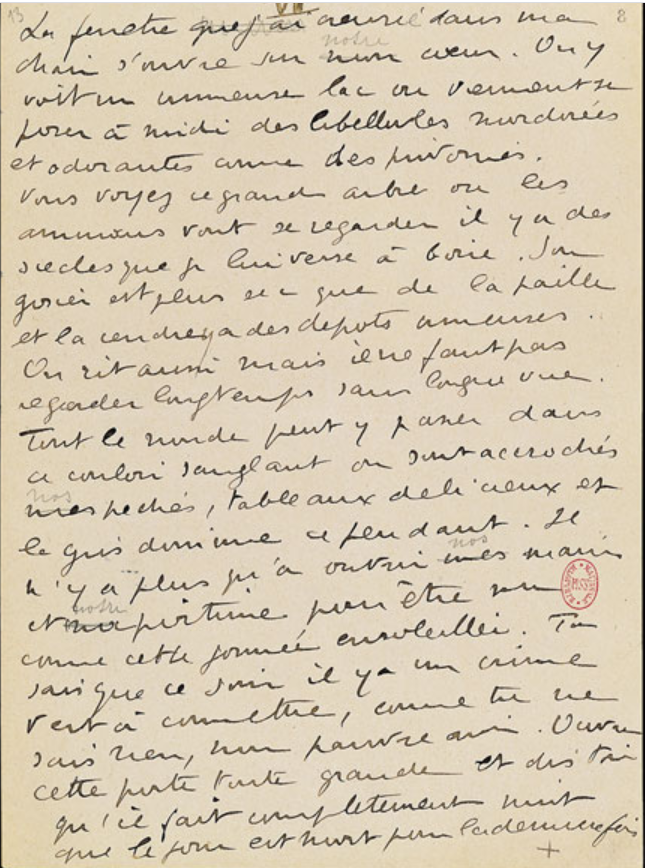 13 VII 8
La fenêtre que j'ai creusée dans ma
notre
chair s'ouvre sur mon cœur. On y
voit un immense lac où viennent se
poser à midi des libellules mordorées
et odorantes comme des pivoines.
Vous voyez ce grand arbre où les
animaux vont se regarder il y a des
siècles que je lui verse à boire. Son
gosier est plus sec que de la paille
et la cendre y a des dépôts immenses.
On rit aussi mais il ne faut pas
regarder longtemps sans longue vue.
Tout le monde peut y passer dans
ce couloir sanglant où sont accrochés
nos
mes péchés, tableaux délicieux et
le gris domine cependant. Il
nos
n'y a plus qu'à ouvrir mes mains
notre
et ma poitrine pour être nu
comme cette journée ensoleillée. Tu
sais que ce soir il y a un crime
vert à commettre, comme tu ne
sais rien, mon pauvre ami. Ouvre
cette porte toute grande et dis toi
qu'il fait complètement nuit
que le jour est mort pour la dernière fois
+